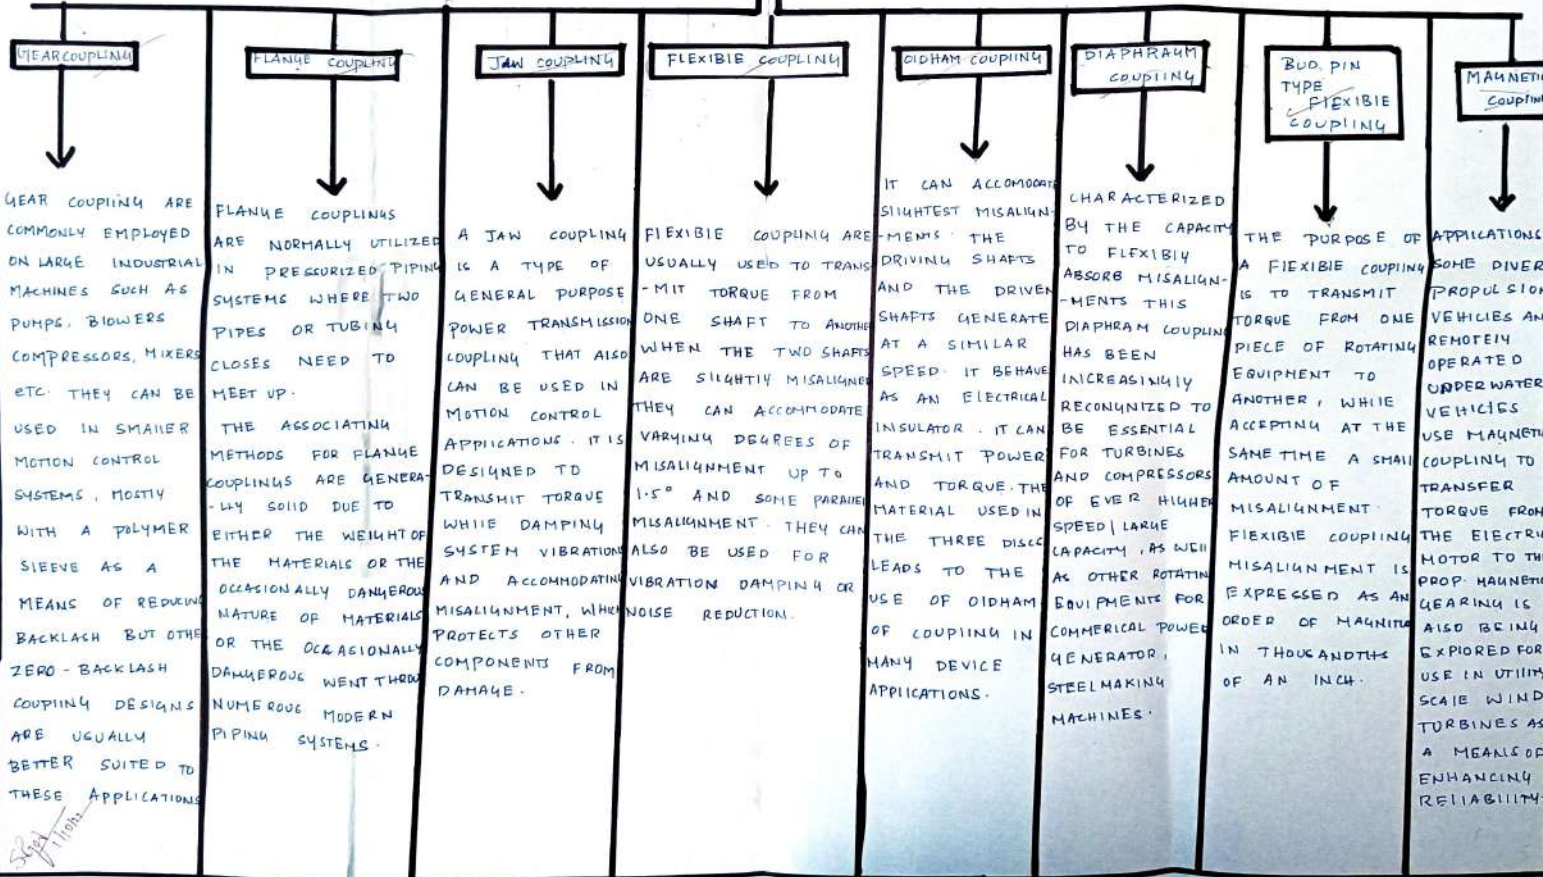 GEAR COUPLING
GEAR COUPLING ARE
COMMONLY EMPLOYED
ON LARGE INDUSTRIAL
MACHINES SUCH AS
PUMPS, BLOWERS
COMPRESSORS, MIXERS
ETC. THEY CAN BE
USED IN SMALLER
MOTION CONTROL
SYSTEMS, MOSTLY
WITH A POLYMER
SLEEVE AS A
MEANS OF REDUCING
BACKLASH BUT OTHE
ZERO - BACKLASH
COUPLING DESIGNS
ARE USUALLY
BETTER SUITED TO
THESE APPLICATIONS
FLANGE COUPLING
FLANGE COUPLINGS
ARE NORMALLY UTILIZED
IN PRESSURIZED PIPING
SYSTEMS WHERE TWO
PIPES OR TUBING
CLOSES NEED TO
MEET UP.
THE ASSOCIATING
METHODS FOR FLANGE
COUPLINGS ARE GENERA-
-LLY SOLID DUE TO
EITHER THE WEIGHT OF
THE MATERIALS OR THE
OCCASIONALLY DANGEROUS
NATURE OF MATERIALS
OR THE OCCASIONALLY
DANGEROUS WENT THROU
NUMEROUS MODERN
PIPING SYSTEMS.
JAW COUPLING
A JAW COUPLING
IS A TYPE OF
GENERAL PURPOSE
POWER TRANSMISSION
COUPLING THAT ALSO
CAN BE USED IN
MOTION CONTROL
APPLICATIONS. IT IS
DESIGNED TO
TRANSMIT TORQUE
WHILE DAMPING
SYSTEM VIBRATIONS
AND ACCOMMODATING
MISALIGNMENT, WHICH
PROTECTS OTHER
COMPONENTS FROM
DAMAGE.
FLEXIBLE COUPLING
FLEXIBLE COUPLING ARE
USUALLY USED TO TRANS
-MIT TORQUE FROM
ONE SHAFT TO ANOTHE
WHEN THE TWO SHAFTS
ARE SLIGHTLY MISALIGNED
THEY CAN ACCOMMODATE
VARYING DEGREES OF
MISALIGNMENT UP TO
1.5° AND SOME PARALLEL
MISALIGNMENT. THEY CAN
ALSO BE USED FOR
VIBRATION DAMPING OR
NOISE REDUCTION.
OLDHAM COUPLING
IT CAN ACCOMODATE
SLIGHTEST MISALIGN-
-MENTS. THE
DRIVING SHAFTS
AND THE DRIVEN
SHAFTS GENERATE
AT A SIMILAR
SPEED. IT BEHAVE
AS AN ELECTRICAL
INSULATOR. IT CAN
TRANSMIT POWER
AND TORQUE. THE
MATERIAL USED IN
THE THREE DISCS
LEADS TO THE
USE OF OLDHAM
OF COUPLING IN
MANY DEVICE
APPLICATIONS.
DIAPHRAGM
COUPLING
CHARACTERIZED
BY THE CAPACITY
TO FLEXIBLY
ABSORB MISALIGN-
-MENTS THIS
DIAPHRAM COUPLING
HAS BEEN
INCREASINGLY
RECONGNIZED TO
BE ESSENTIAL
FOR TURBINES
AND COMPRESSORS
OF EVER HIGHER
SPEED/LARGE
CAPACITY, AS WELL
AS OTHER ROTATIN
EQUIPMENTS FOR
COMMERICAL POWER
GENERATOR,
STEELMAKING
MACHINES.
BUD. PIN
TYPE
FLEXIBLE
COUPLING
THE PURPOSE OF
A FLEXIBLE COUPLING
IS TO TRANSMIT
TORQUE FROM ONE
PIECE OF ROTATING
EQUIPMENT TO
ANOTHER, WHILE
ACCEPTING AT THE
SAME TIME A SMALL
AMOUNT OF
MISALIGNMENT.
FLEXIBLE COUPLING
MISALIGNMENT IS
EXPRESSED AS AN
ORDER OF MAGNITU
IN THOUSANDTHS
OF AN INCH.
MAGNETIC
COUPLIN
APPLICATIONS
SOME DIVER
PROPULSION
VEHICLES AN
REMOTELY
OPERATED
UNDERWATER
VEHICLES
USE MAGNETIC
COUPLING TO
TRANSFER
TORQUE FROM
THE ELECTRIC
MOTOR TO THE
PROP. MAGNETIC
GEARING IS
ALSO BEING
EXPLORED FOR
USE IN UTILITY
SCALE WIND
TURBINES AS
A MEANS OF
ENHANCING
RELIABILITY.